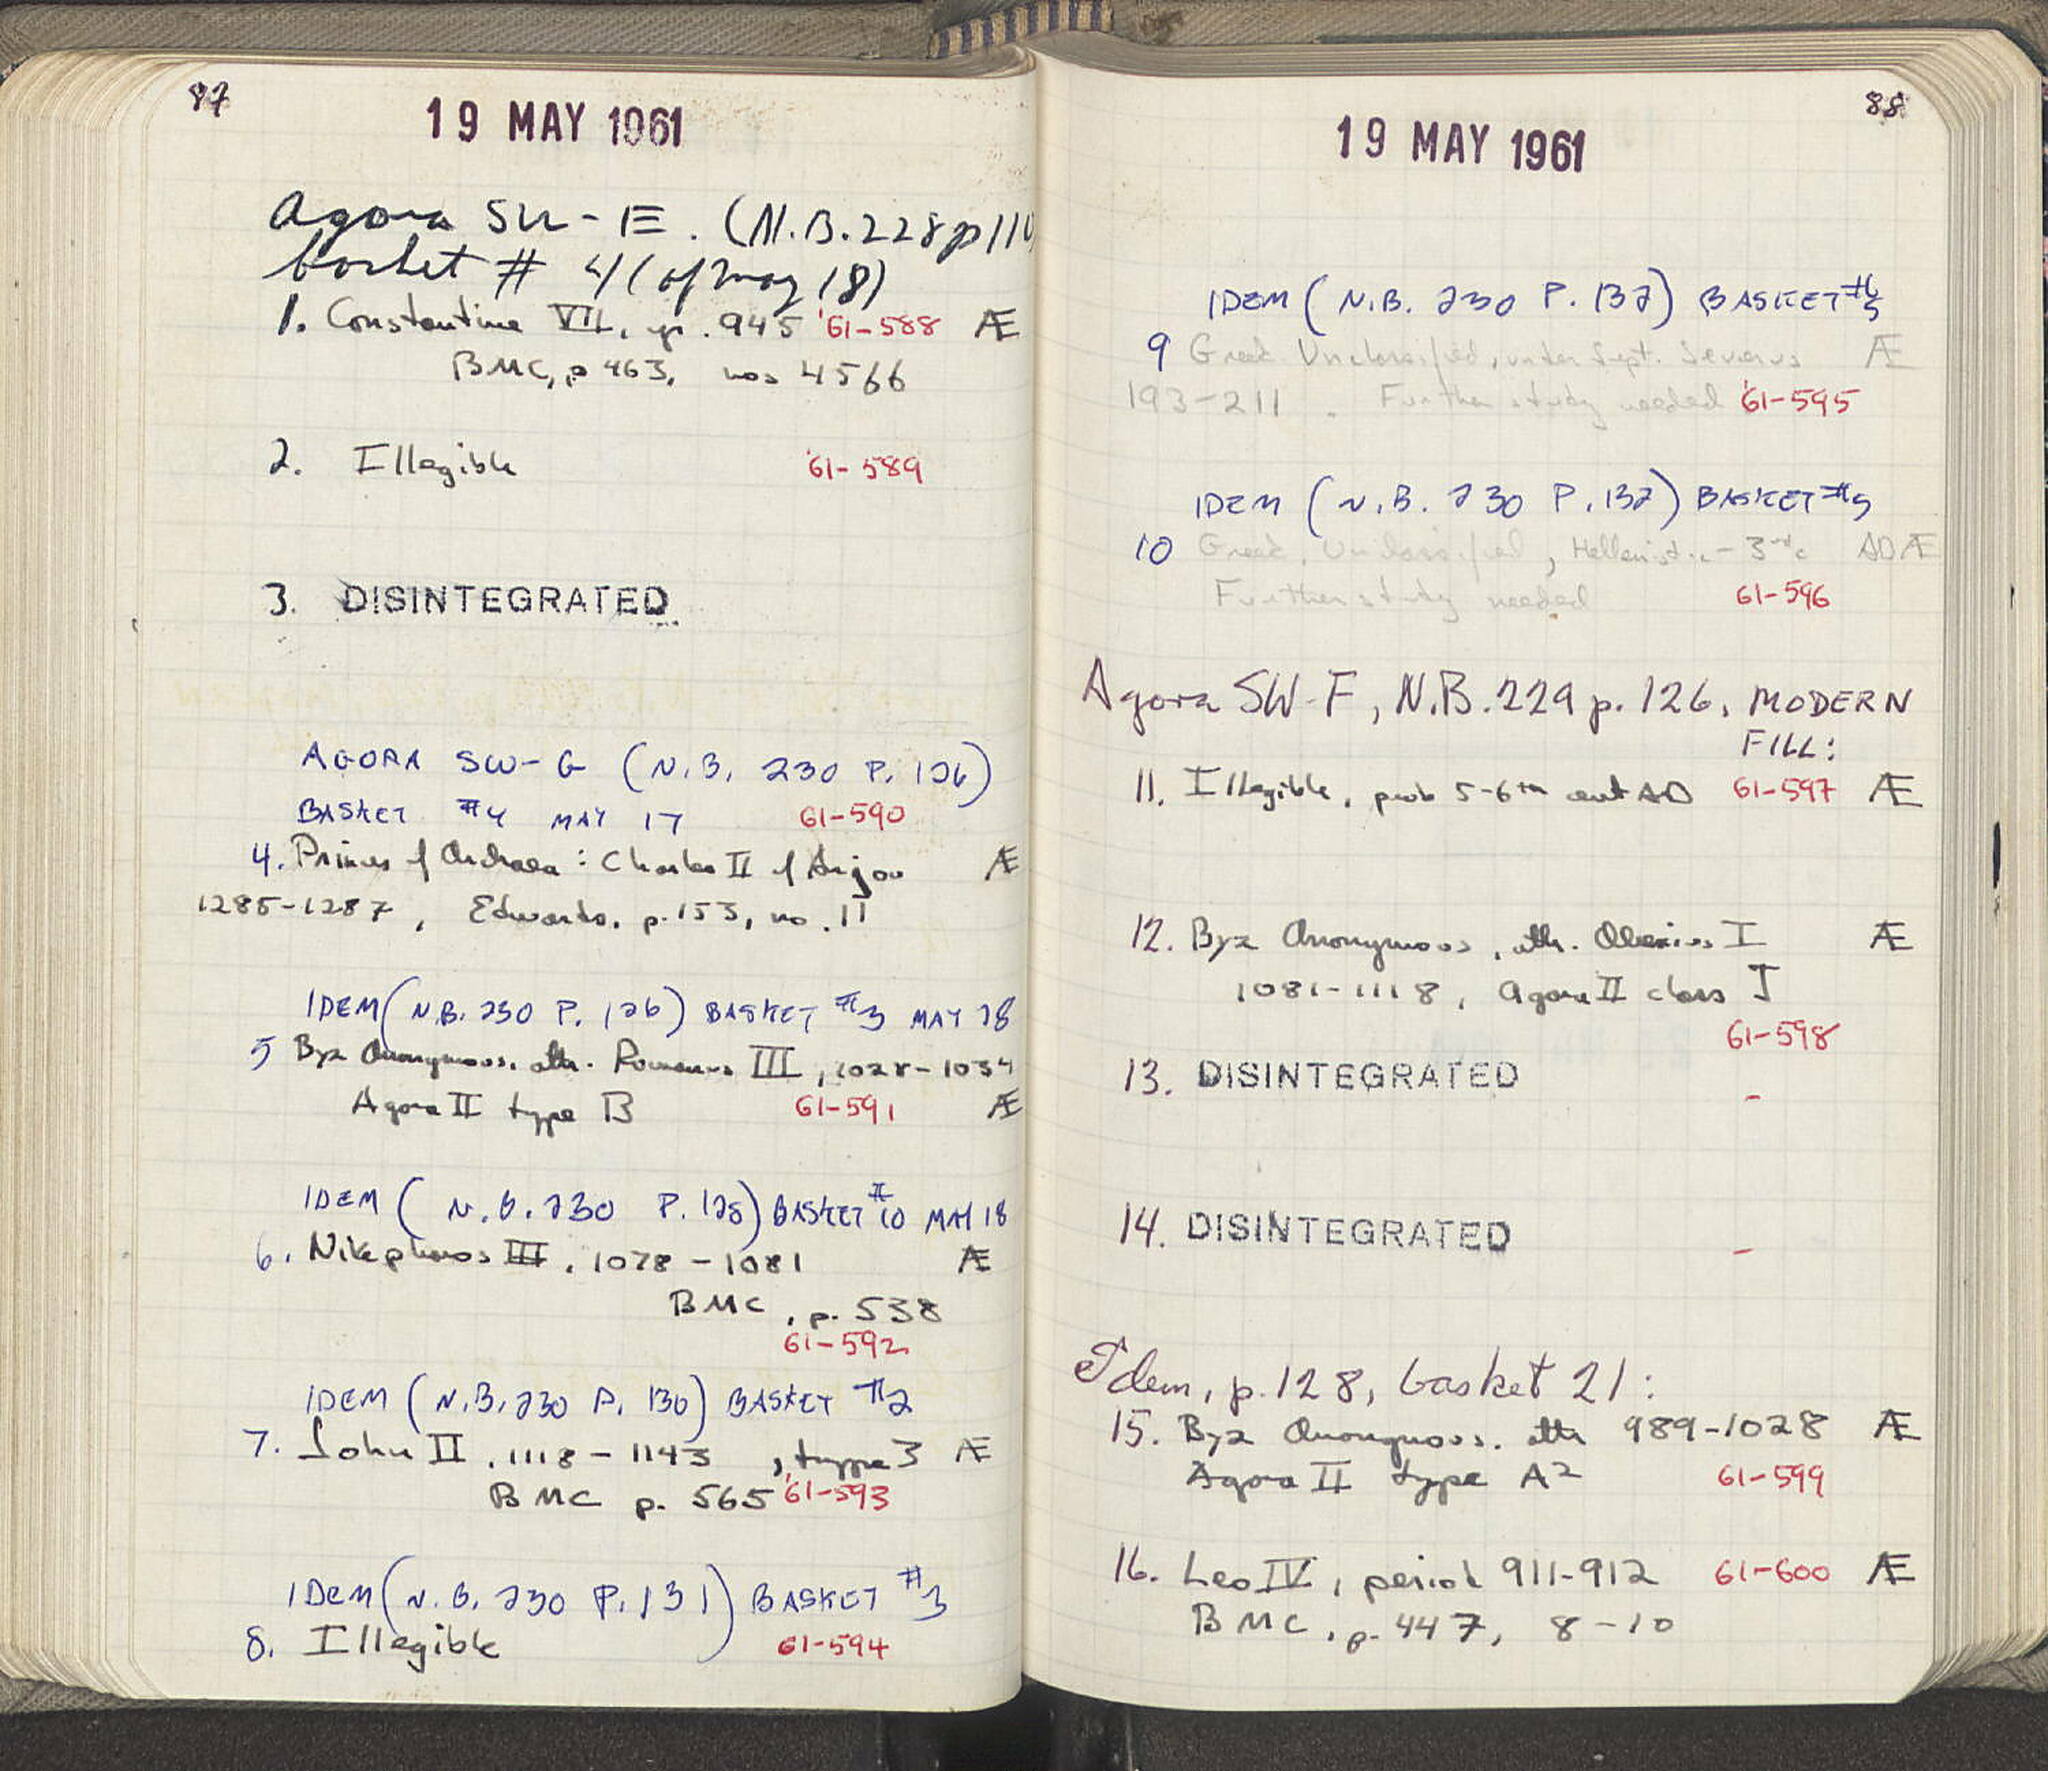 87
19 MAY 1961
Agora SW-E. (N.B.228 p 110
basket # 4 (of May 18)
1. Constantine VII, yr. 945 '61-588 Æ
BMC, p 463, nos 4566
2. Illegible '61-589
3. DISINTEGRATED
AGORA SW-G (N.B. 230 P. 126)
BASKET #4 MAY 17 61-590
4. Princes of Achaea : Charles II of Anjou Æ
1285-1287, Edwards, p. 153, no. 11
IDEM (N.B. 230 P. 126) BASKET #3 MAY 18
5 Byz Anonymous. attr. Romanus III, 1028-1034
Agora II type B 61-591 Æ
IDEM (N.B. 230 P. 128) BASKET #10 MAY 18
6. Nikephoros III, 1078-1081 Æ
BMC, p. 538
61-592
IDEM (N.B. 230 P. 130) BASKET #2
7. John II, 1118-1143, type 3 Æ
BMC p. 565 '61-593
IDEM (N.B. 230 P. 131) BASKET #3
8. Illegible 61-594
88
19 MAY 1961
IDEM (N.B. 230 P. 132) BASKET #5
9 Greek Unclassified, under Sept. Severus Æ
193-211. Further study needed '61-595
IDEM (N.B. 230 P. 132) BASKET #5
10 Greek, Unclassified, Hellenistic - 3rd c AD Æ
Further study needed 61-596
Agora SW-F, N.B. 229 p. 126, MODERN
FILL:
11. Illegible, prob 5-6th cent AD 61-597 Æ
12. Byz Anonymous, attr. Alexius I Æ
1081-1118, Agora II class J
61-598
13. DISINTEGRATED -
14. DISINTEGRATED -
Idem, p. 128, basket 21:
15. Byz Anonymous. attr 989-1028 Æ
Agora II type A2 61-599
16. Leo IV, period 911-912 61-600 Æ
BMC, p. 447, 8-10